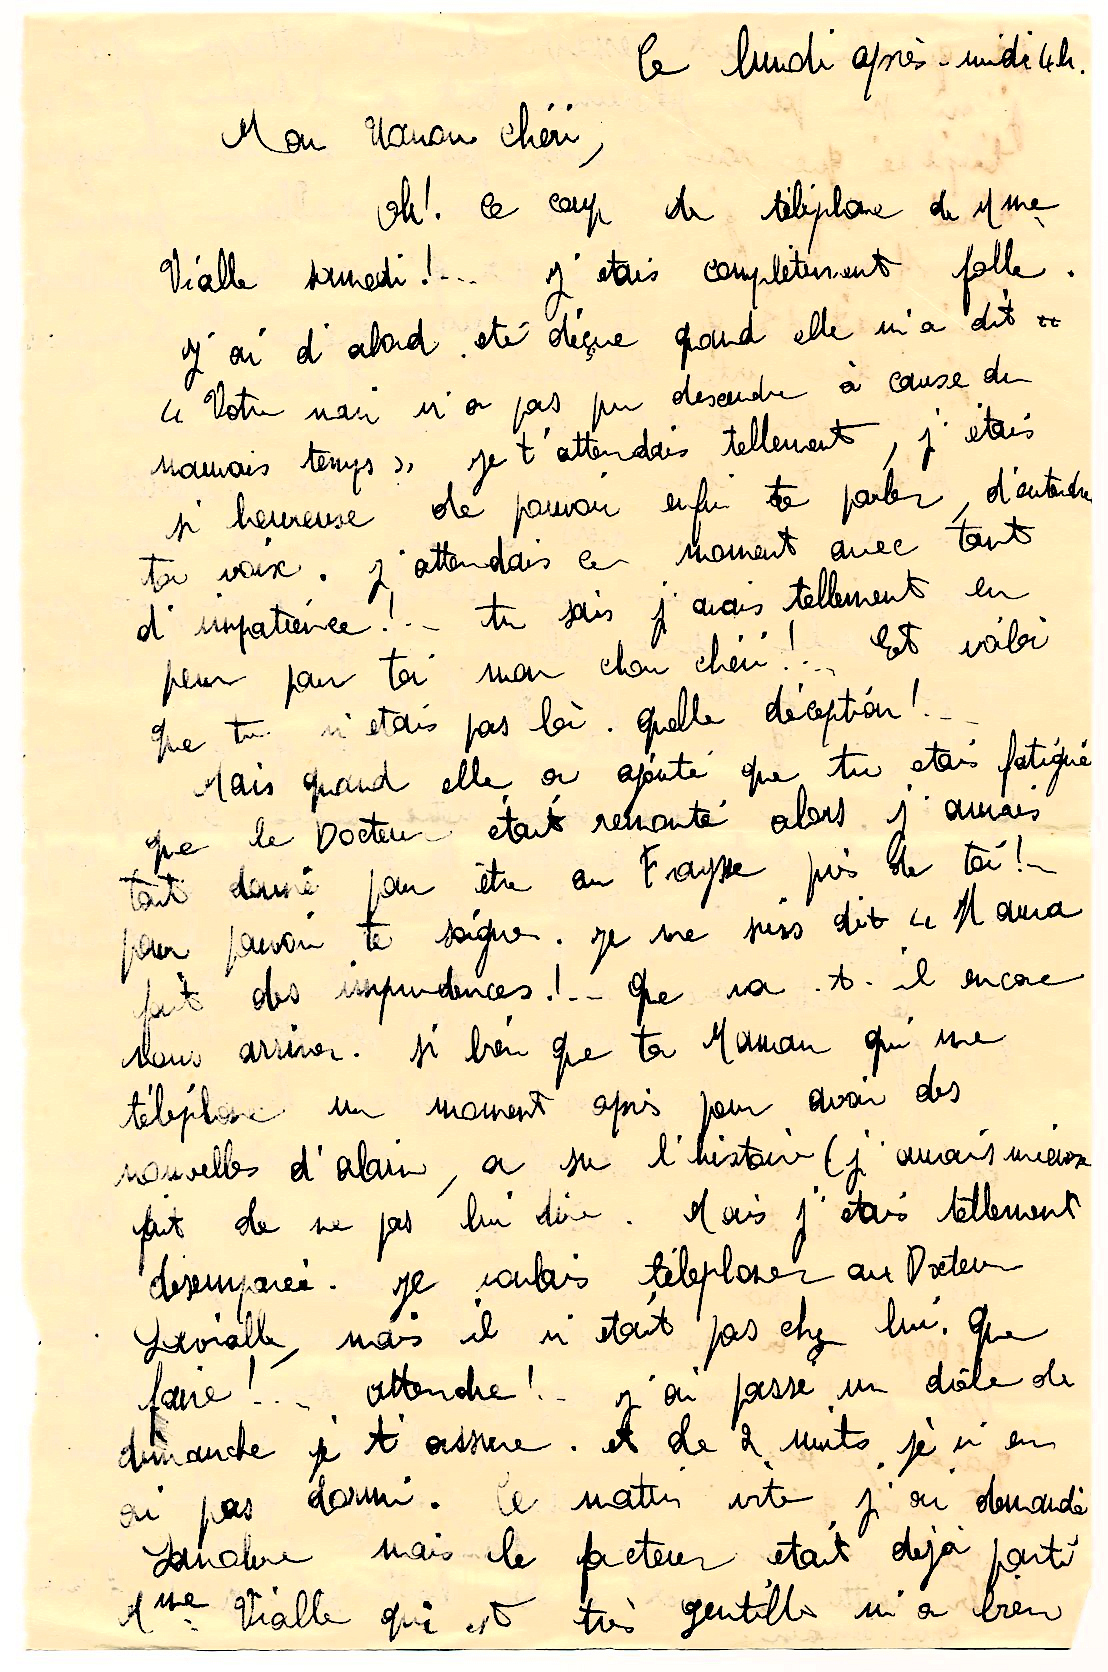 Ce lundi après-midi 4h.
Mon Nanou chéri,
Oh!. Ce coup de téléphone de Mme
Vialle samedi!... J'étais complètement folle.
J'ai d'abord été déçue quand elle m'a dit
"Votre mari n'a pas pu descendre à cause du
mauvais temps" Je t'attendais tellement, j'étais
si heureuse de pouvoir enfin te parler, d'entendre
ta voix. J'attendais ce moment avec tant
d'impatience!.. tu sais j'avais tellement eu
peur pour toi mon chou chéri!... Et voilà
que tu n'étais pas là. Quelle déception!...
Mais quand elle a ajouté que tu étais fatigué
que le Docteur était remonté alors j'aurais
tout donné pour être au Fraysse près de toi!..
pour pouvoir te soigner. Je me suis dit "Il aura
fait des imprudences!.. Que va-t-il encore
nous arriver. Si bien que ta Maman qui me
téléphone un moment après pour avoir des
nouvelles d'alain, a su l'histoire (j'aurais mieux
fait de ne pas lui dire. Mais j'étais tellement
désemparée. Je voulais téléphoner au Docteur
Lavialle, mais il n'était pas chez lui. Que
faire!... attendre!.. J'ai passé un drôle de
dimanche je t'assure. et de 2 nuits je n'en
ai pas dormi. Ce matin vite j'ai demandé
mais le facteur était déjà parti
Mme Vialle qui est très gentille m'a bien